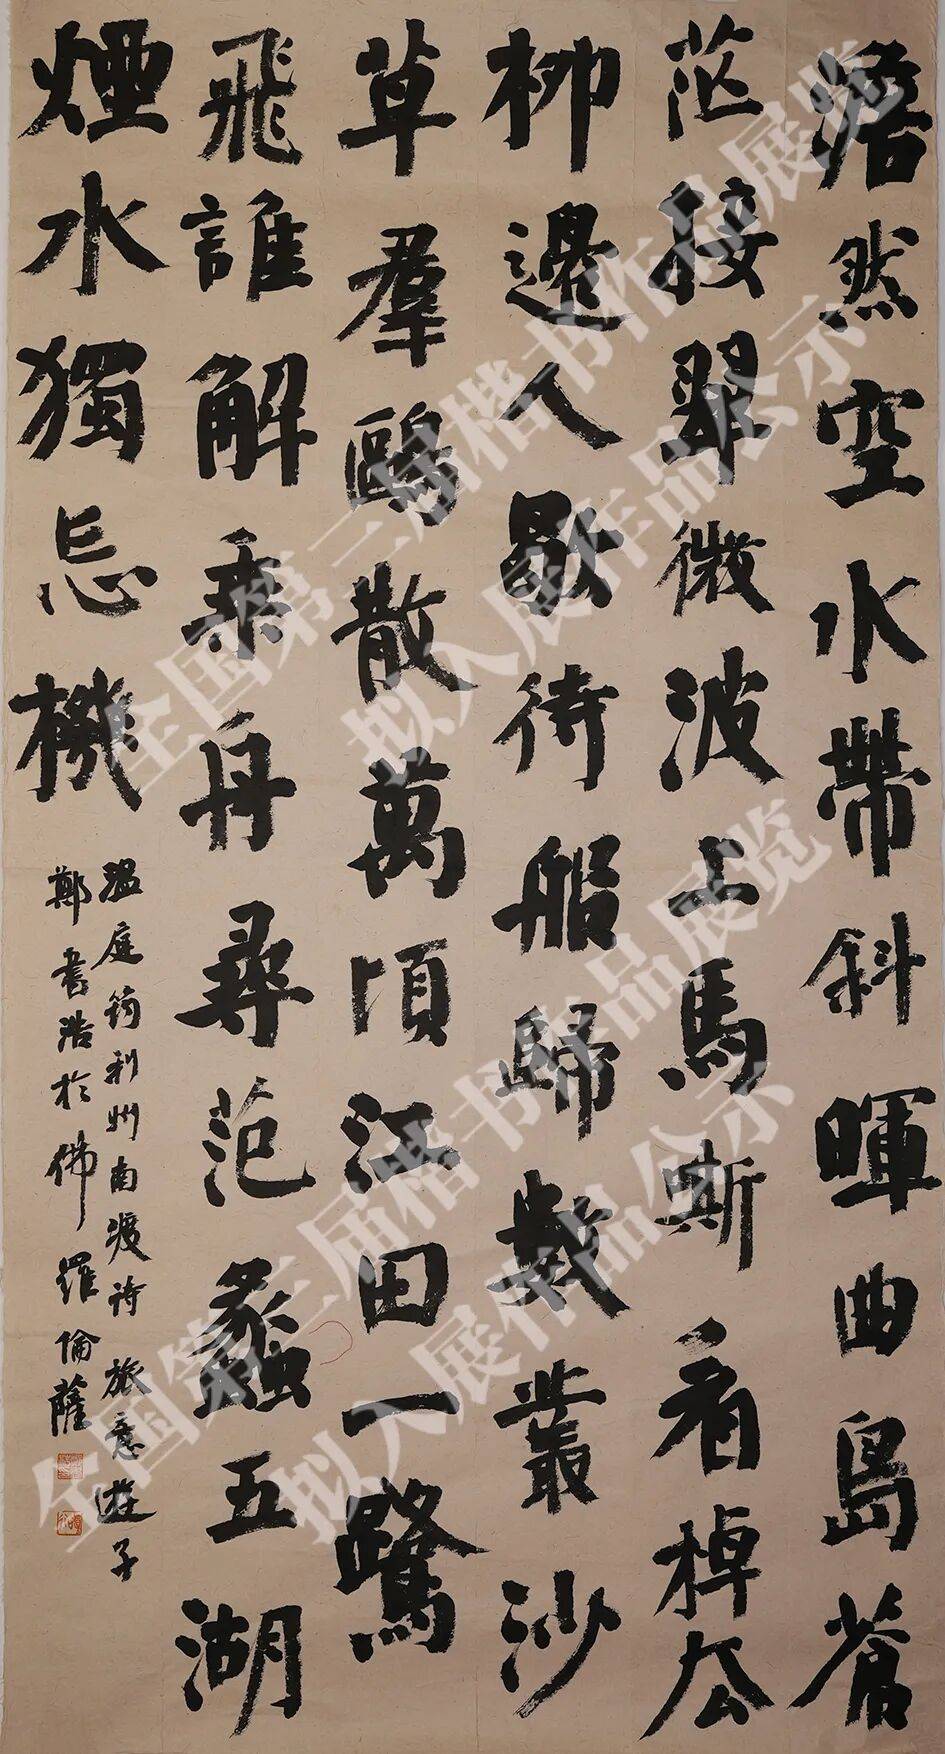 澹然空水帶斜暉曲島蒼
茫接翠微波上馬嘶看棹去
柳邊人歇待船歸數叢沙
草羣鷗散萬頃江田一鷺
飛誰解乘舟尋范蠡五湖
煙水獨忘機
溫庭筠利州南渡詩 旅意遊子
鄭書浩於佛羅倫薩
全国第三届楷书作品展览
拟入展作品公示
全国第三届楷书作品展览
拟入展作品公示